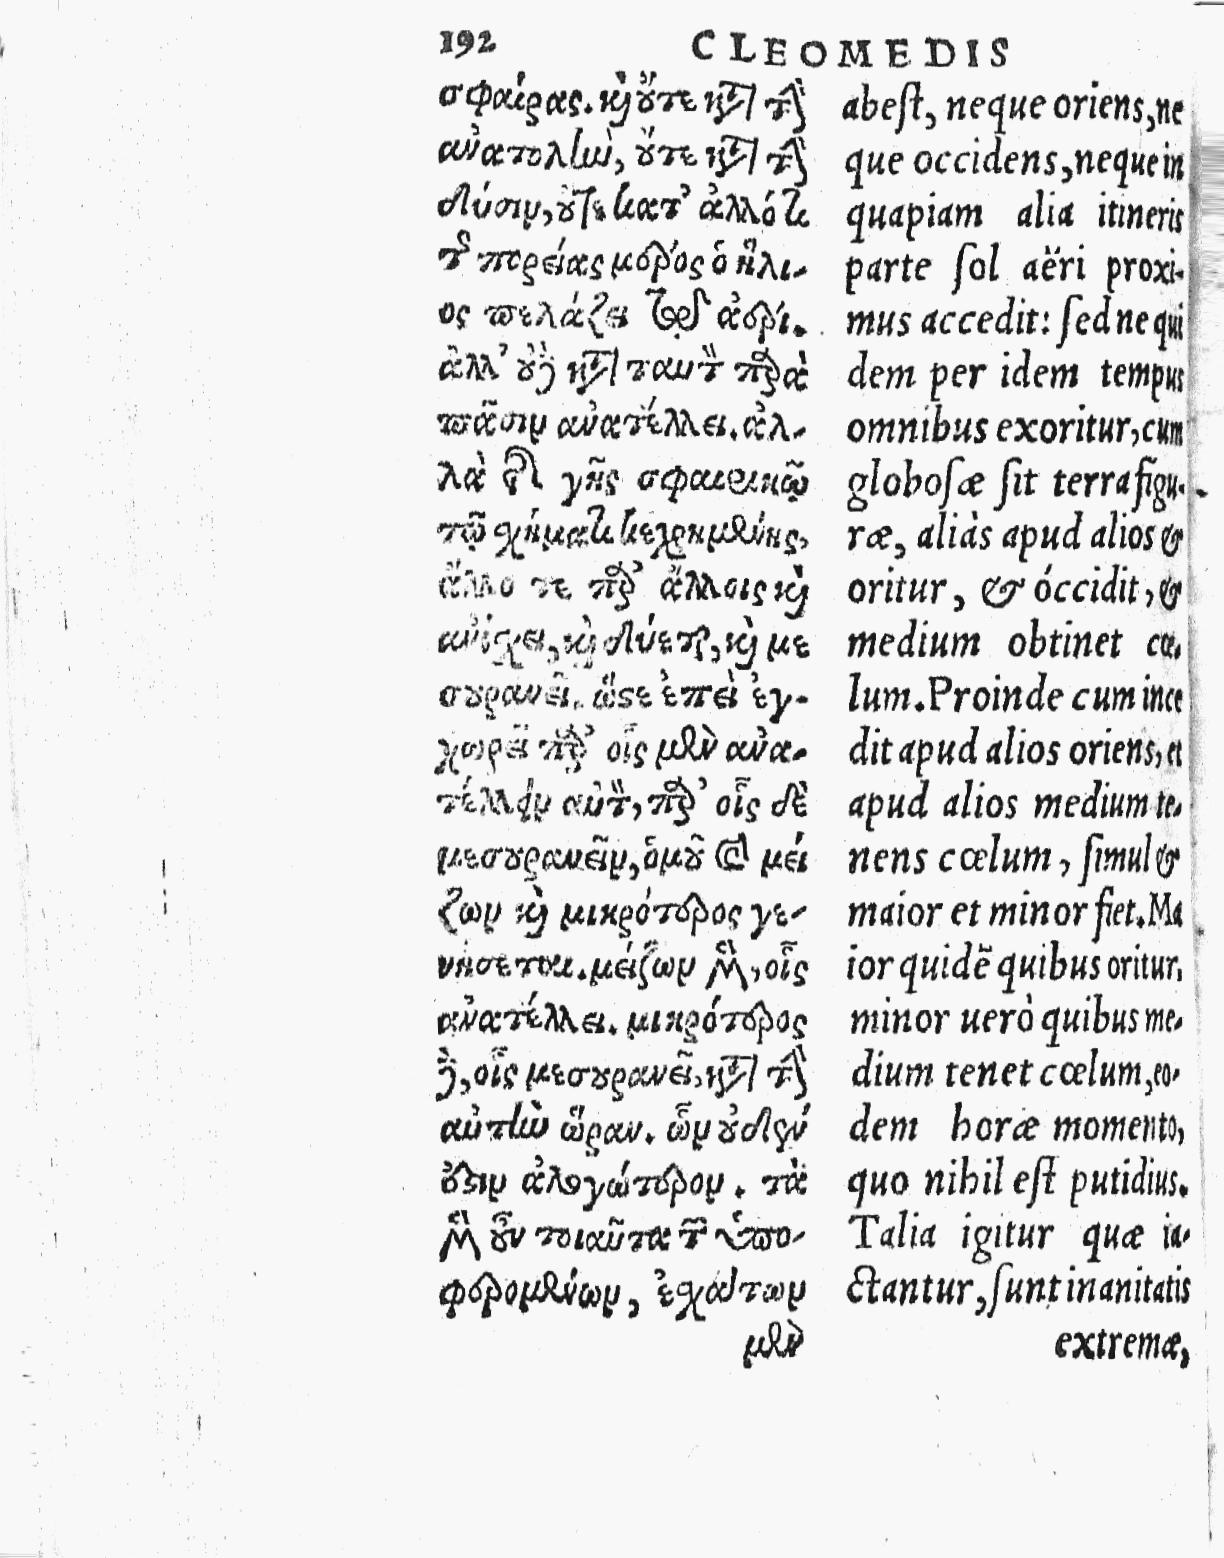 192
CLEOMEDIS
σφαίρας. καὶ οὔτε κατὰ τὴν
ἀνατολὴν, οὔτε κατὰ τὴν
δύσιν, οὔτε κατ' ἀλλό τι
τῆς πορείας μέρος ὁ ἥλι-
ος πελάζει τῷ ἀέρι.
ἀλλ' οὐδὲ κατὰ ταυτὸ παρὰ
πᾶσιν ἀνατέλλει. ἀλ-
λὰ τῆς γῆς σφαιρικῷ
τῷ σχήματι κεχρημένης,
ἄλλο τε παρ' ἄλλοις καὶ
ἀνίσχει, καὶ δύεται, καὶ με
σουρανεῖ. ὥστε ἐπεὶ ἐγ-
χωρεῖ παρ' οἷς μὲν ἀνα-
τέλλειν αὐτὸν, παρ' οἷς δὲ
μεσουρανεῖν, ὁμοῦ καὶ μεί
ζων καὶ μικρότερος γε-
νήσεται. μείζων μὲν, οἷς
ἀνατέλλει. μικρότερος
δὲ, οἷς μεσουρανεῖ, κατὰ τὴν
αὐτὴν ὥραν. ὧν οὐδὲν
ἐστιν ἀλογώτερον. τὰ
μὲν οὖν τοιαῦτα τῶν ὑπο-
φερομένων, ἐσχάτων
μὲν
abest, neque oriens, ne
que occidens, neque in
quapiam alia itineris
parte sol aëri proxi-
mus accedit: sed ne qui
dem per idem tempus
omnibus exoritur, cum
globosæ sit terra figu-
ræ, aliàs apud alios &
oritur, & óccidit, &
medium obtinet cœ-
lum. Proinde cum ince
dit apud alios oriens, et
apud alios medium te-
nens cœlum, simul &
maior et minor fiet. Ma
ior quidẽ quibus oritur,
minor uerò quibus me-
dium tenet cœlum, eo-
dem horæ momento,
quo nihil est putidius.
Talia igitur quæ ia-
ctantur, sunt inanitatis
extremæ,